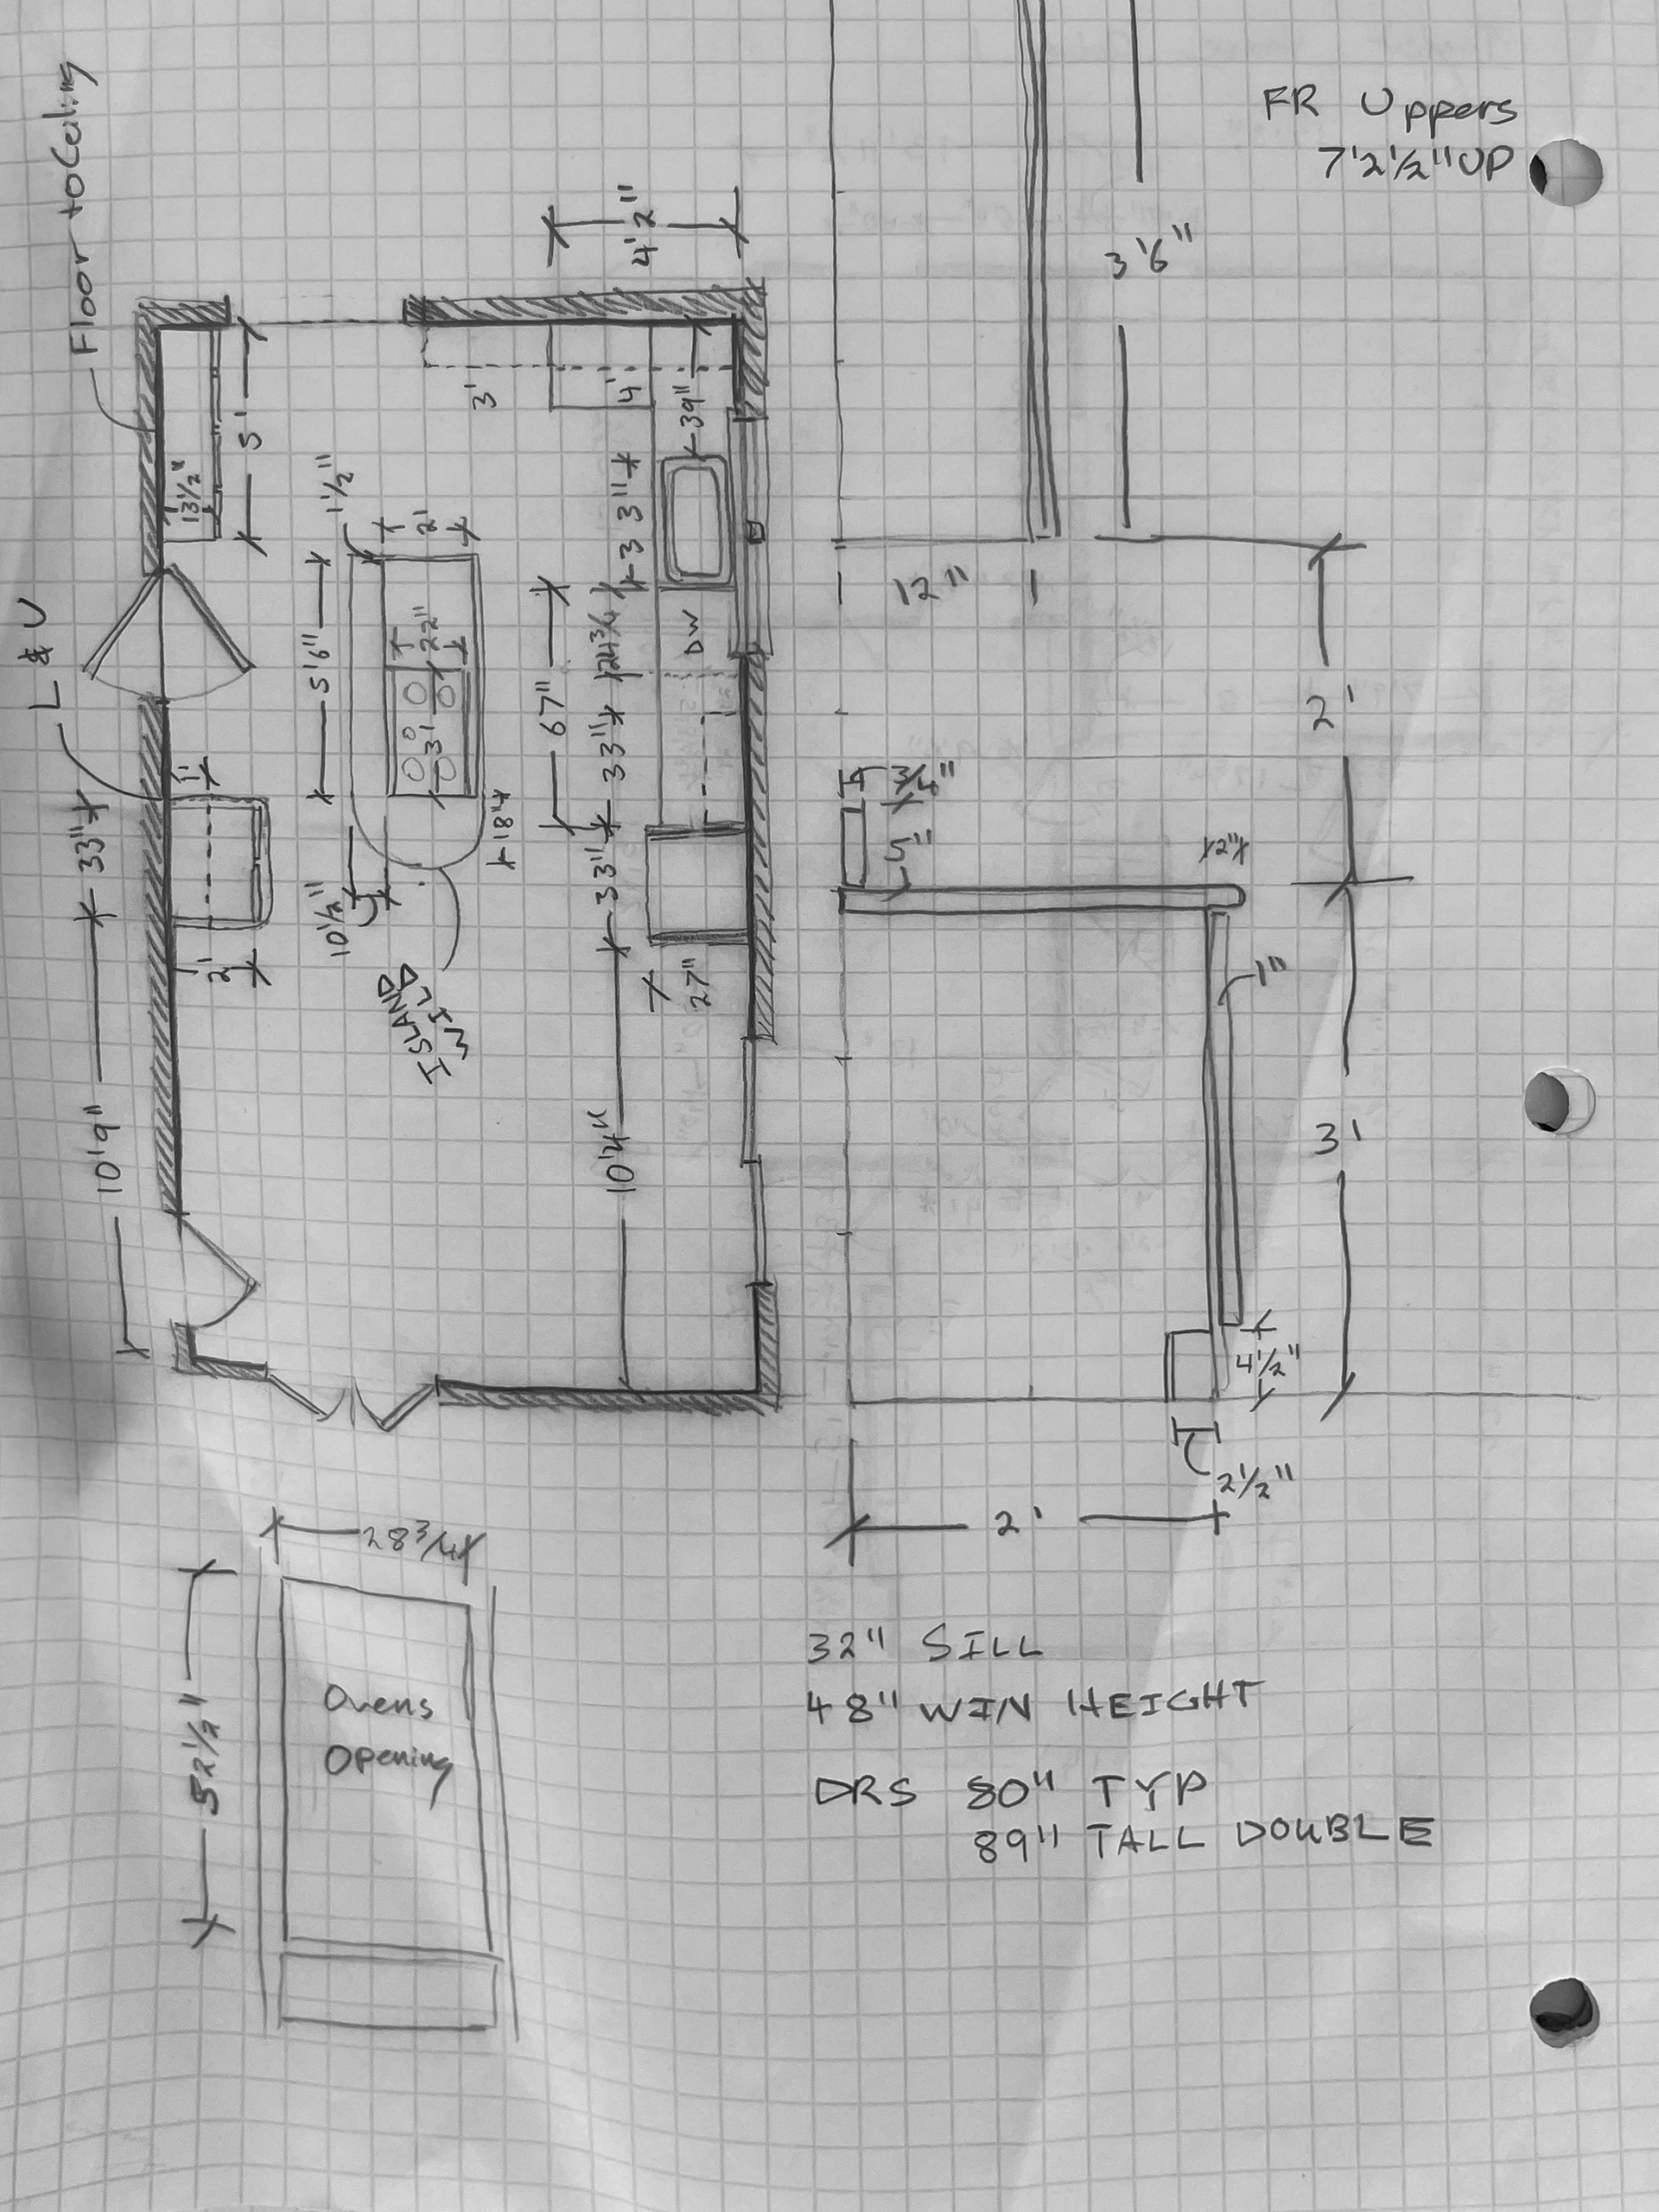 Floor to Ceiling
FR Uppers
7'2½" UP
3'6"
4'2"
5'
3'
4'
39"
13½"
1½"
2'
33"
12"
L & U
5'6"
22"
3'
67"
24¾
DW
33"
2'
1'
33"
18"
33"
¾"
5"
2"
10½"
2'
27"
1"
ISLAND
WILD
10'9"
10'4"
3'
4½"
2½"
2'
28¾
52½"
Ovens
Opening
32" SILL
48" WIN HEIGHT
DRS 80" TYP
89" TALL DOUBLE